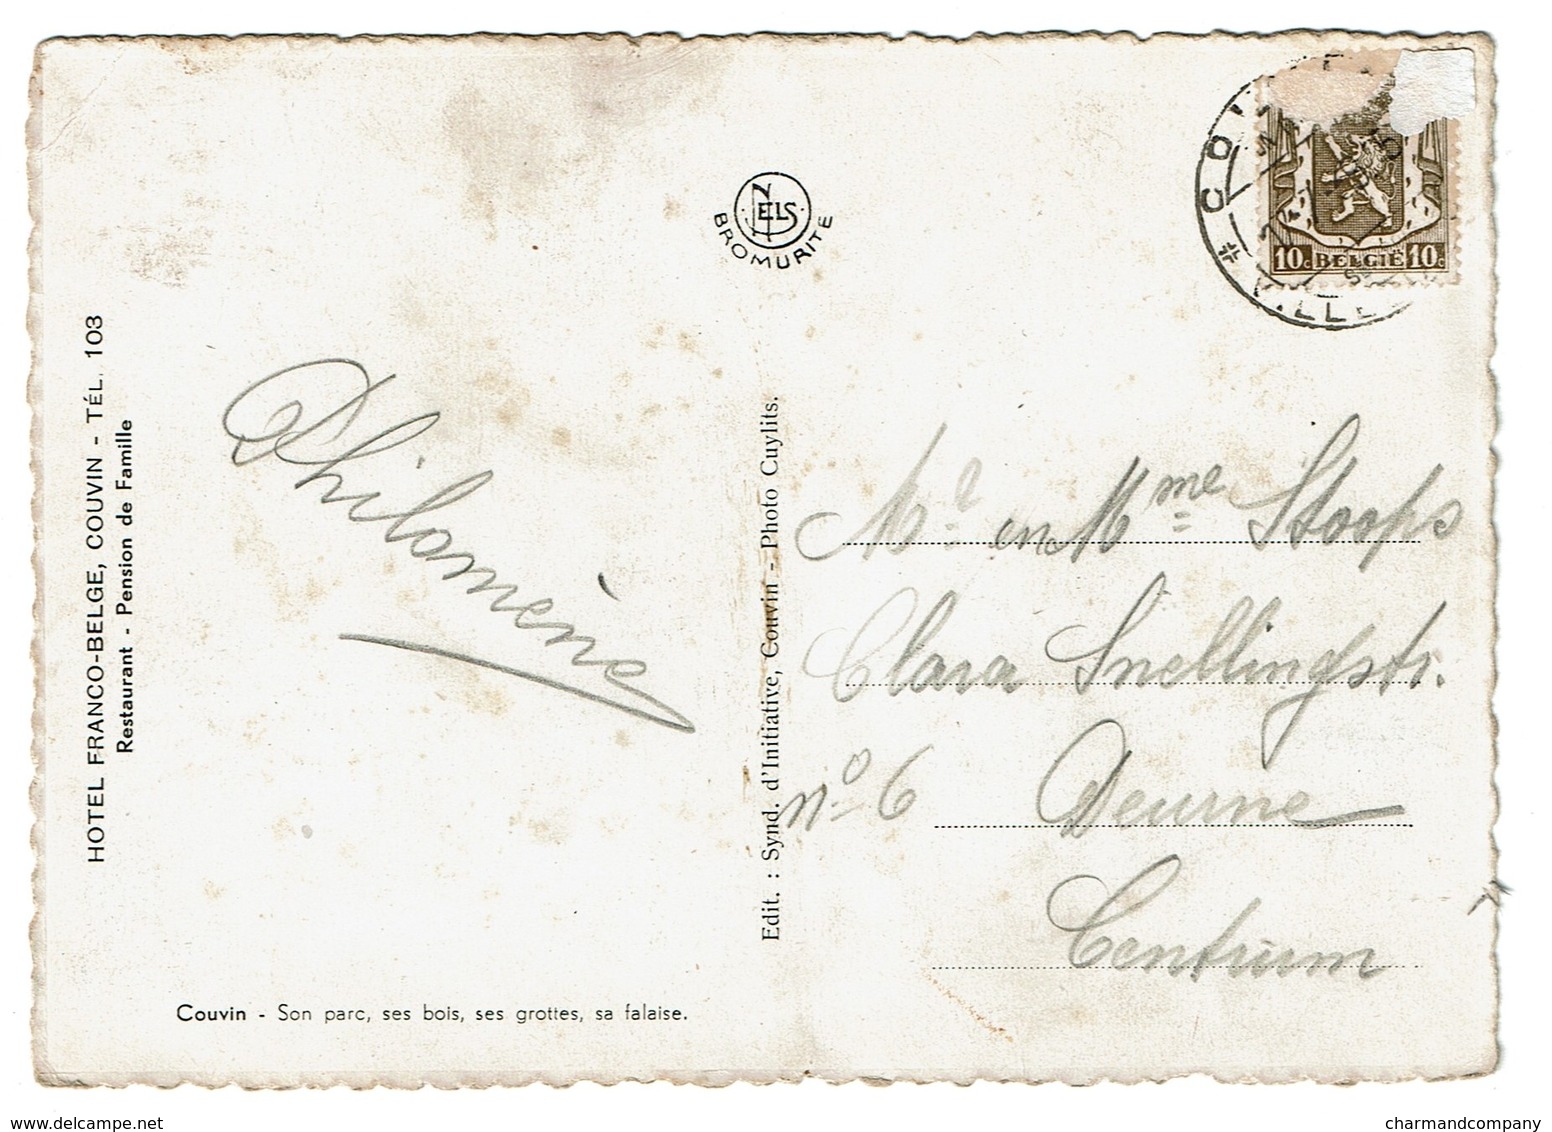 HOTEL FRANCO-BELGE, COUVIN - TÉL. 103
Restaurant - Pension de Famille
NELS
BROMURITE
Philomène
Couvin - Son parc, ses bois, ses grottes, sa falaise.
Edit. : Synd. d'Initiative, Couvin - Photo Cuylits.
10c BELGIË 10c
Mr en Mme Stoops
Clara Snellingstr.
No 6 Deurne
Centrum
www.delcampe.net
charmandcompany